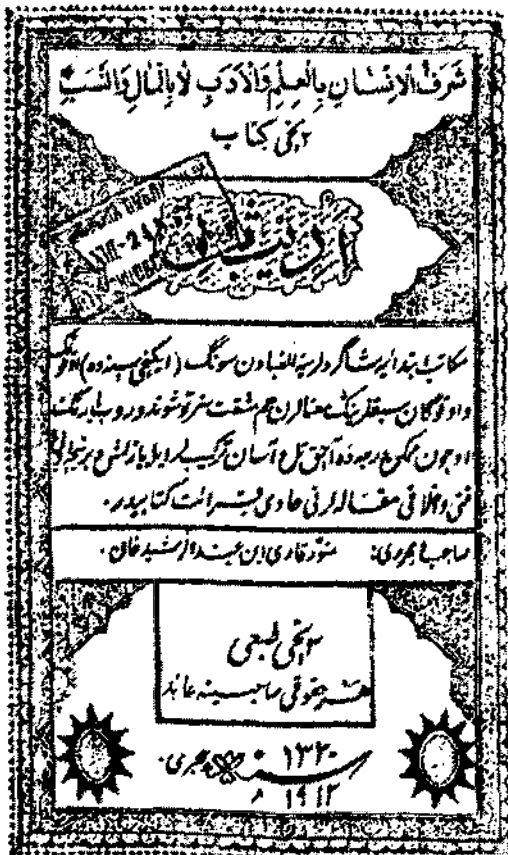 شَرَفُ الْاِنْسَانِ بِالْعِلْمِ وَالْاَدَبِ لَا بِالْمَالِ وَالنَّسَبِ
۲ نچی کتاب
مکاتب ابتدائیه شاگردلریغه الفبادن سونگ (ایکنچی سنه‌ده)
و اوقوگان سبقلرینگ معنالرن هم مشقت سز توشوندوروب
اوچون ممکن مرتبه‌ده آچیق تل و آسان ترکیب لر ایله یازلمش برنیچه
فنی و اخلاقی مقاله لرنی حاوی قرائت کتابیدر.
صاحب و محرری: منور قاری ابن عبدالرشید خان.
۳ نچی طبعی
هر حقوقی صاحبینه عائد
۱۳۳۰ سنه هجری.
۱۹۱۲